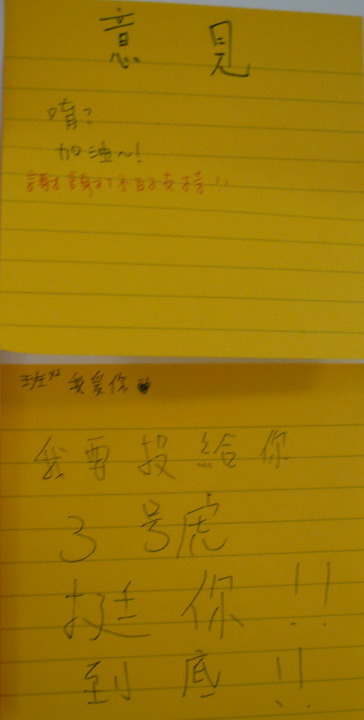 意見
唷?
加油~!
謝謝你的支持!!
我愛你
我要投給你
3号虎
挺你!!
到底!!